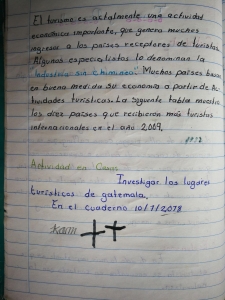 El turismo es actalmente una actividad
económica importante, que genera muchos
ingresos a los países receptores de turistas.
Algunos especialistas lo denominan la
"Industria sin Chimenea". Muchos países basan
en buena medida su economía a partir de Ac-
tividades turísticas. La siguiente tabla muestra
los diez países que recibieron más turistas
internacionales en el año 2,009.
Actividad en Casa
Investigar los lugares
turísticos de guatemala,
En el cuaderno 10/7/2,018